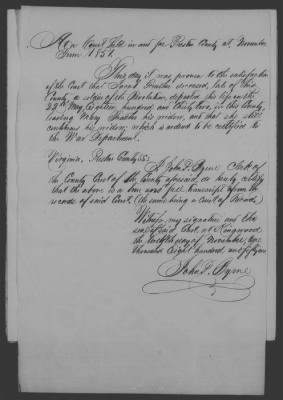 At a Court held in and for Preston County at November
Term 1851.
This day it was proven to the satisfaction
of the Court that Jacob Feather deceased, late of this
County, a soldier of the Revolution, departed this life on the
28th May Eighteen hundred, and thirty two, in this County,
leaving Mary Feather his widow, and that she still
continues his widow; which is ordered to be certified to
the War Department.
Virginia, Preston County ss:
I John P. Byrne Clerk of
the County Court of the County aforesaid, do hereby certify
that the above is a true and full transcript from the
records of said Court. (the same being a Court of Record.)
Witness my signature and the
seal of said Court, at Kingwood
the day of November, one
thousand Eight hundred, and fifty one
John P. Byrne